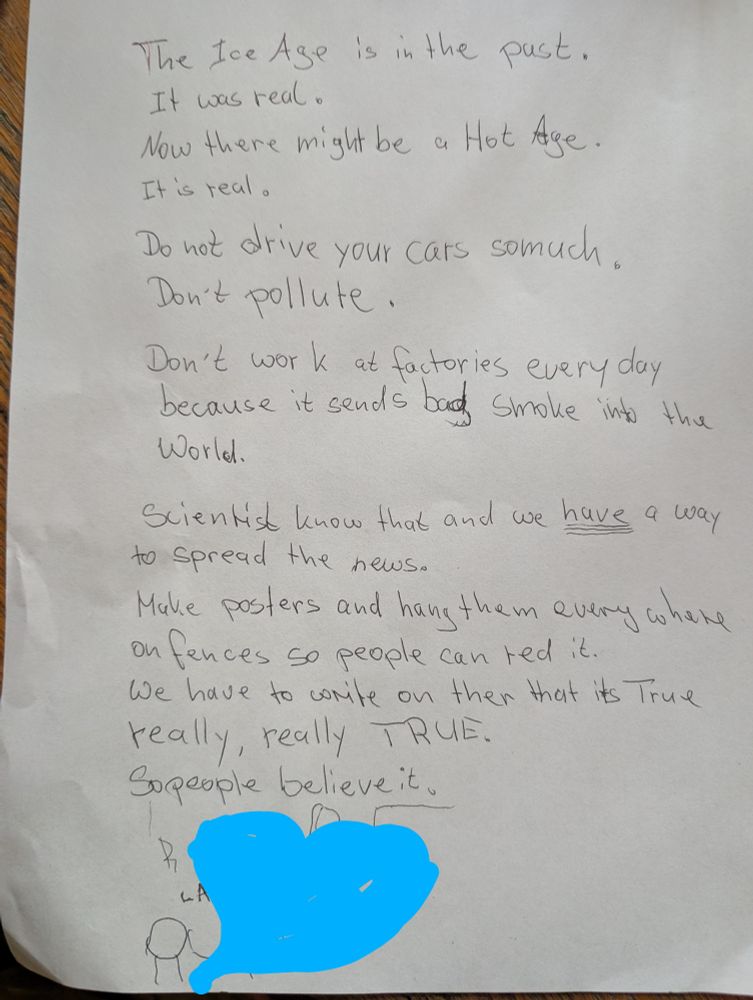 The Ice Age is in the past.
It was real.
Now there might be a Hot Age.
It is real.
Do not drive your cars somuch.
Don't pollute.
Don't work at factories every day
because it sends bad smoke into the
World.
Scientist know that and we have a way
to spread the news.
Make posters and hang them every where
on fences so people can red it.
We have to write on ther that its True
really, really TRUE.
So people believe it.